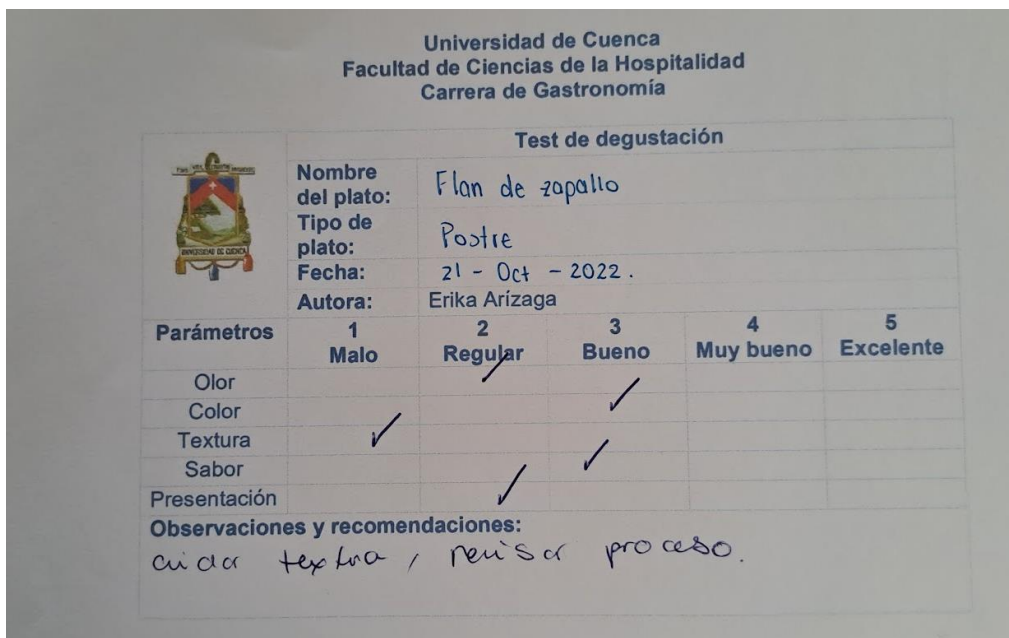 Universidad de Cuenca
Facultad de Ciencias de la Hospitalidad
Carrera de Gastronomía
Test de degustación
Nombre del plato: Flan de zapallo
Tipo de plato: Postre
Fecha: 21 - Oct - 2022.
Autora: Erika Arízaga
UNIVERSIDAD DE CUENCA
Parámetros 1 Malo 2 Regular 3 Bueno 4 Muy bueno 5 Excelente
Olor ✓
Color ✓
Textura ✓
Sabor ✓
Presentación ✓
Observaciones y recomendaciones:
cuidar textura, revisar proceso.